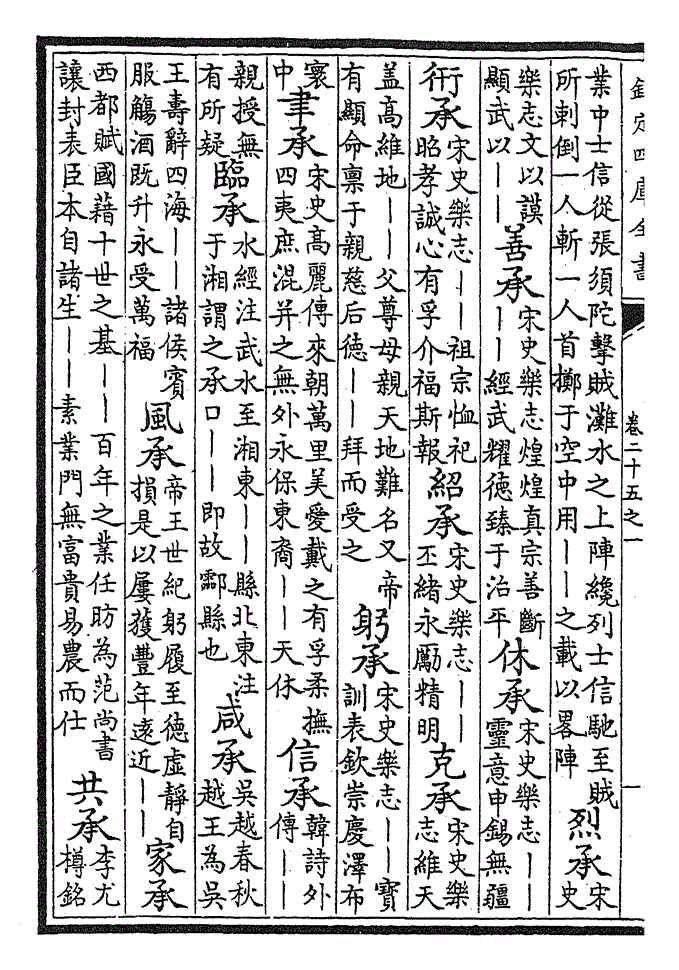 欽定四庫全書
卷二十五之一
一
業中士信從張須陀擊賊濰水之上陣纔列士信馳至賊
所刺倒一人斬一人首擲于空中用——之載以畧陣
烈承
宋
史
樂志文以謨
顯武以——
善承
宋史樂志煌煌真宗善斷
——經武耀德臻于治平
休承
宋史樂志——
靈意申錫無疆
衎承
宋史樂志——祖宗恤祀
昭孝誠心有孚介福斯報
紹承
宋史樂志——
丕緒永勵精明
克承
宋史樂
志維天
盖高維地——父尊母親天地難名又帝
有顯命禀于親慈后德——拜而受之
躬承
宋史樂志——寶
訓表欽崇慶澤布
寰
中
聿承
宋史高麗傳來朝萬里美愛戴之有孚柔撫
四夷庶混并之無外永保東裔——天休
信承
韓詩外
傳——
親授無
有所疑
臨承
水經注武水至湘東——縣北東注
于湘謂之承口——即故酃縣也
咸承
吳越春秋
越王為吳
王壽辭四海——諸侯賓
服觴酒既升永受萬福
風承
帝王世紀躬履至德虛靜自
損是以屢獲豐年遠近——
家承
西都賦國藉十世之基——百年之業任昉為范尚書
讓封表臣本自諸生——素業門無富貴易農而仕
共承
李尤
樽銘